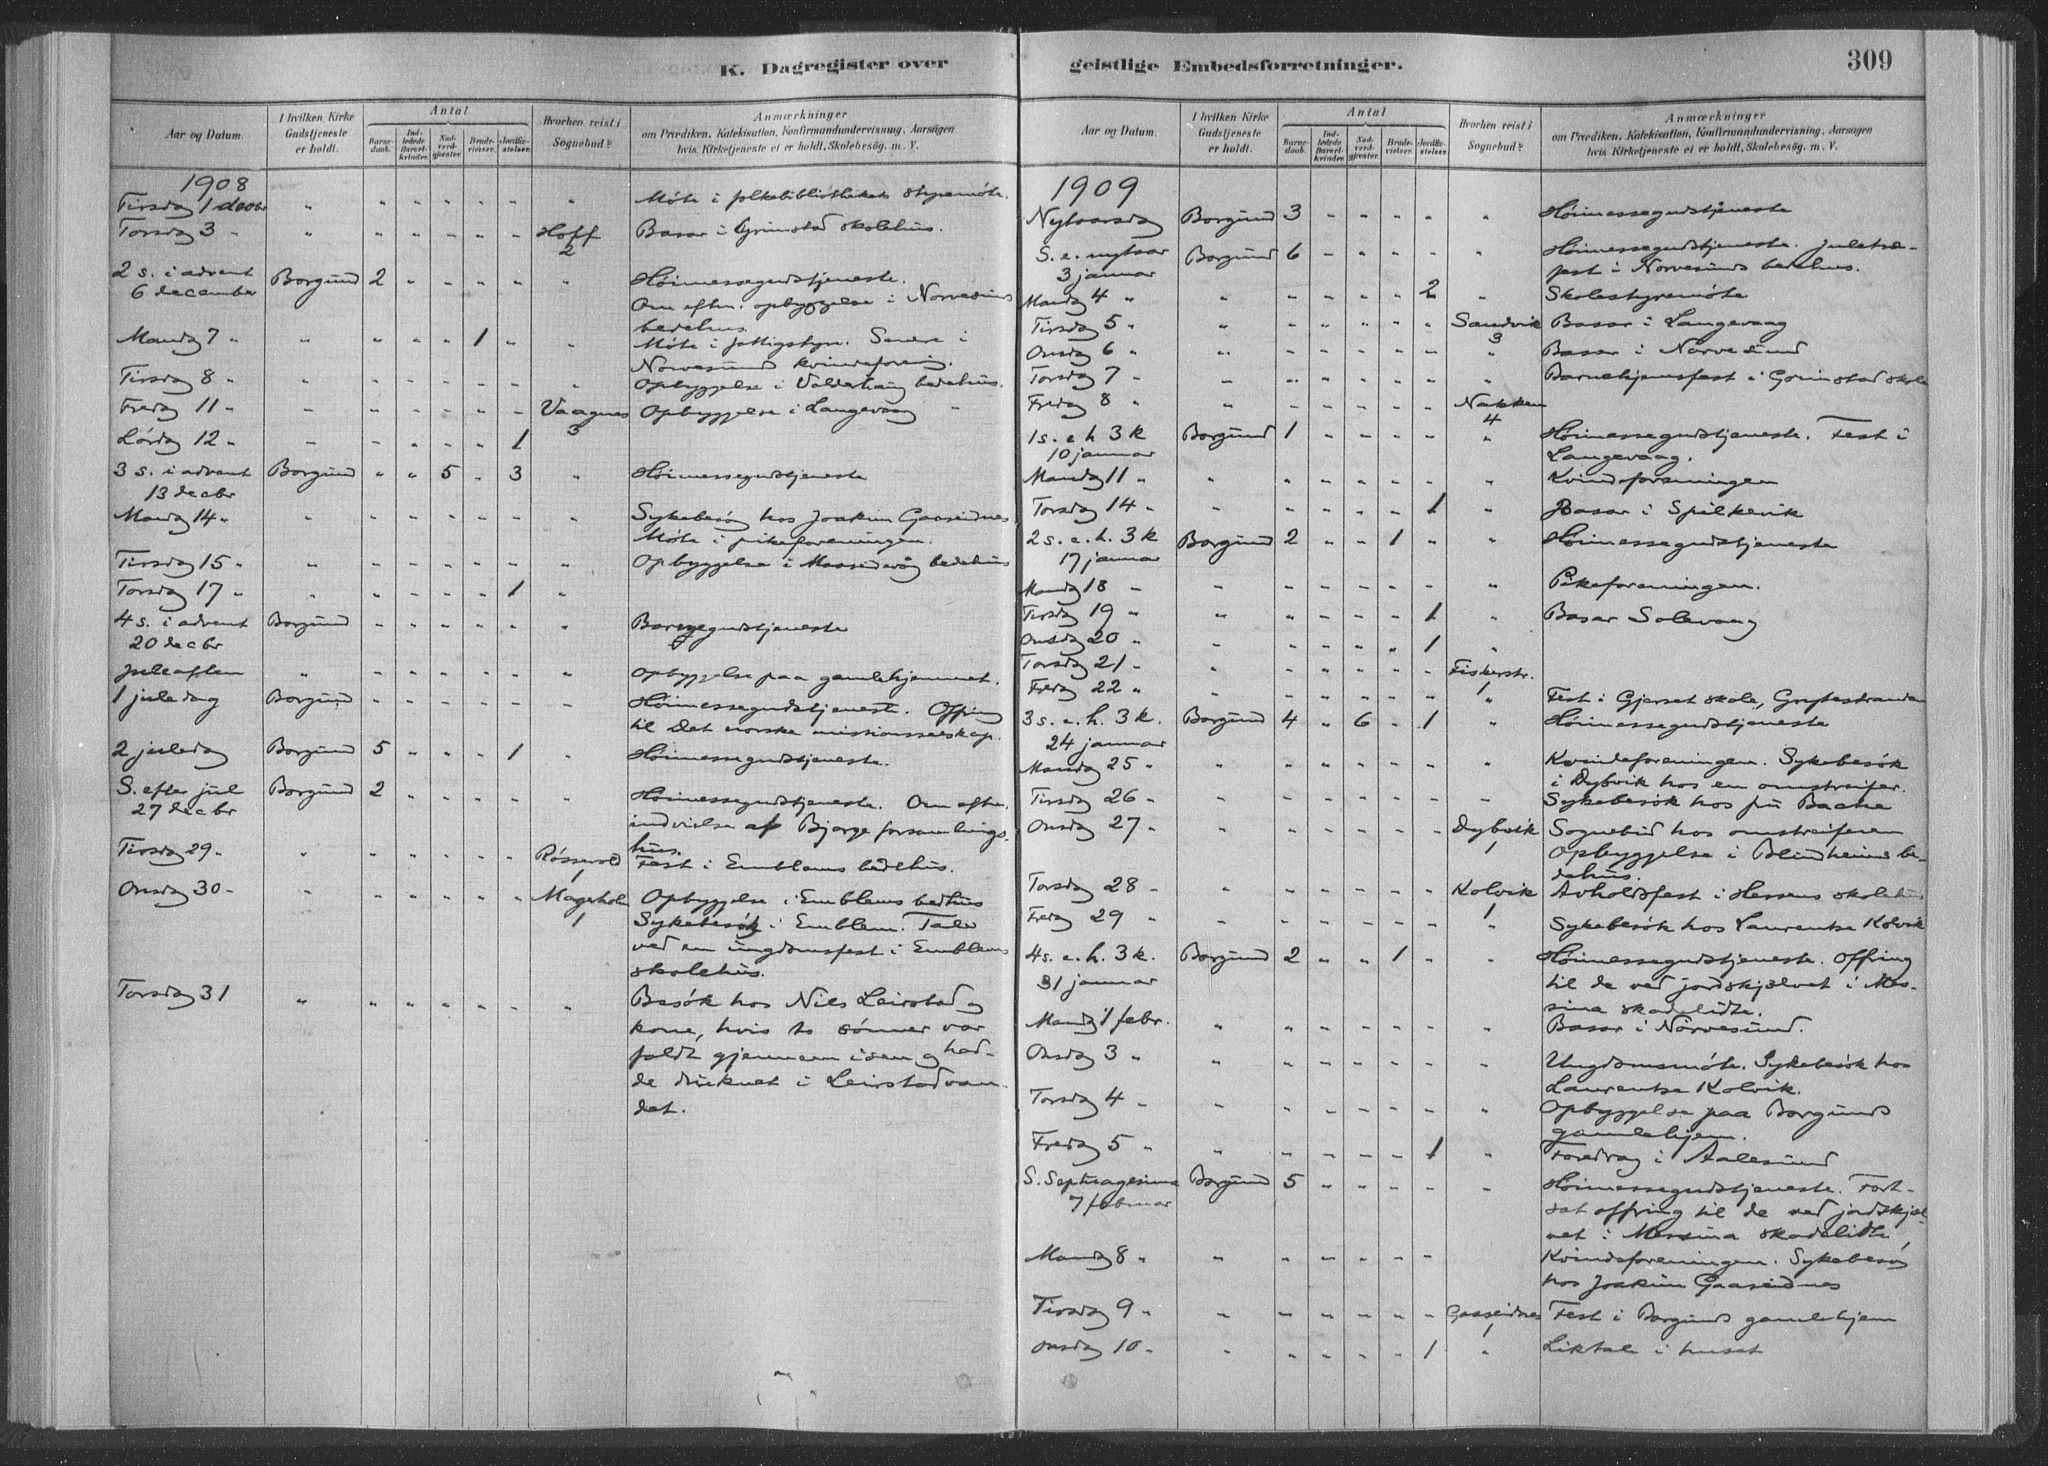 K. Dagregister over
Aar og Datum.
I hvilken Kirke Gudstjeneste er holdt.
Antal
Barnedaab.
Indledede Barselkvinder.
Nadverdgjester.
Brudevielser.
Jordfæstelser.
Hvorhen reist i Sognebud?
Anmærkninger
om Prædiken, Katekisation, Konfirmandundervisning, Aarsagen
hvis Kirketjeneste ei er holdt, Skolebesøg. m. V.
1908
Tirsdag 1 decbr " " " " " " " Møte i folkebibliotekets styremøte.
Torsdag 3 " " " " " " " Hoff 2 Basar i Grimstad skolehus.
2 s. i advent Borgund 2 " " " " " Høimessegudstjeneste.
6 december Om eftm. opbyggelse i Nørvesunds
bedehus.
Mandag 7 " " " " " 1 " " Møte i fattigstyr. Senere i
Nørvesund kvindeforening.
Tirsdag 8 " " " " " " " " Opbyggelse i Valdehaug bedehus.
Fredag 11 " " " " " " " Vaagnes 3 Opbyggelse i Langevaag "
Lørdag 12 " " " " " " 1
3 s. i advent Borgund " " 5 " 3 " Høimessegudstjeneste
13 decbr
Mandag 14 " " " " " " " " Sykebesøg hos Joakim Gaaseidnes
Møte i pikeforeningen.
Tirsdag 15 " " " " " " " " Opbyggelse i Maaseidvåg bedehus
Torsdag 17 " " " " " " 1 "
4 s. i advent Borgund " " " " " " Barnegudstjeneste
20 decbr
Juleaften " " " " " " " Opbyggelse paa gamlehjemmet.
1 juledag Borgund " " " " " " Høimessegudstjeneste. Offring
til Det norske missionsselskap.
2 juledag Borgund 5 " " " 1 " Høimessegudstjeneste.
S. efter jul Borgund 2 " " " " " Høimessegudstjeneste. Om eftm.
27 decbr indvielse af Bjørge forsamlings-
hus.
Tirsdag 29 " " " " " " " Røssevold 1 Fest i Emblems bedehus.
Onsdag 30 " " " " " " " Mageholm 1 Opbyggelse i Emblems bedhus
Sykebesøk i Emblem. Tale
ved en ungdomsfest i Emblems
skolehus.
Torsdag 31 " " " " " " " Besøk hos Nils Leirstad og
kone, hvis to sønner var
faldt gjennem isen og had-
de druknet i Leirstadvan-
det.
geistlige Embedsforretninger.
309
Aar og Datum.
I hvilken Kirke Gudstjeneste er holdt.
Antal
Barnedaab.
Indledede Barselkvinder.
Nadverdgjester.
Brudevielser.
Jordfæstelser.
Hvorhen reist i Sognebud?
Anmærkninger
om Prædiken, Katekisation, Konfirmandundervisning, Aarsagen
hvis Kirketjeneste ei er holdt, Skolebesøg. m. V.
1909
Nytaarsdag Borgund 3 " " " " " Høimessegudstjeneste
S. e. nytaar Borgund 6 " " " " " Høimessegudstjeneste. Juletræ-
3 januar fest i Nørvesunds bedehus.
Mandag 4 " " " " " " 2 " Skolestyremøte
Tirsdag 5 " " " " " " " Sandvik 3 Basar i Langevaag
Onsdag 6 " " " " " " " " Basar i Nørvesund
Torsdag 7 " " " " " " " " Barnehjemsfest i Grimstad skole
Fredag 8 " " " " " " " Nakken 4
1 s. e. h. 3 k Borgund 1 " " " " " Høimessegudstjeneste. Fest i
10 januar Langevaag.
Mandag 11 " " " " " " " " Kvindforeningen
Torsdag 14 " " " " " " 1 " Basar i Spilkevik
2 s. e. h. 3 k Borgund 2 " " 1 " " Høimessegudstjeneste
17 januar
Mandag 18 " " " " " " " " Pikeforeningen.
Tirsdag 19 " " " " " " 1 " Basar Solevaag
Onsdag 20 " " " " " " 1 "
Torsdag 21 " " " " " " " Fiskerstr. 1
Fredag 22 " " " " " " " " Fest i Gjerset skole, Gryttestranden
3 s. e. h. 3 k. Borgund 4 " 6 " 1 " Høimessegudstjeneste
24 januar
Mandag 25 " " " " " " " " Kvindeforeningen. Sykebesøk
i Dybvik hos en omstreifer.
Tirsdag 26 " " " " " " " " Sykebesøk hos fru Bache
Onsdag 27 " " " " " " " Dybvik 1 Sognebud hos omstreiferen
Opbyggelse i Blindheims be-
dehus.
Torsdag 28 " " " " " " " Kolvik 1 Avholdsfest i Hessens skolehus
Fredag 29 " " " " " " " " Sykebesøk hos Laurentse Kolvik
4 s. e. h. 3 k. Borgund 2 " " 1 " " Høimessegudstjeneste. Offring
31 januar til de ved jordskjælvet i Mes-
sina skadelidte.
Mandag 1 febr. " " " " " " " Basar i Nørvesund.
Onsdag 3 " " " " " " " " Ungdomsmøte. Sykebesøk hos
Laurentse Kolvik.
Torsdag 4 " " " " " " " Opbyggelse paa Borgunds
gamlehjem.
Fredag 5 " " " " " " 1 " Foredrag i Aalesund
S. Septuagesima Borgund 5 " " " " " Høimessegudstjeneste. Fort-
7 februar sat offring til de ved jordskjæl-
vet i Messina skadelidte.
Mandag 8 " " " " " " " Kvindeforeningen. Sykebesøg
hos Joakim Gaaseidnes
Tirsdag 9 " " " " " " " Gaaseidnes 1 Fest i Borgunds gamlehjem
Onsdag 10 " " " " " " 1 " Liktale i huset